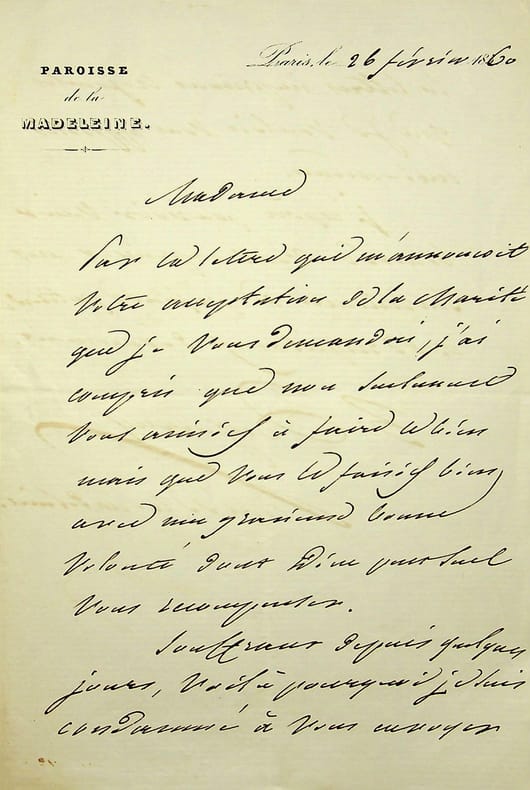 PAROISSE
de la
MADELEINE.
Paris, le 26 février 1860
Madame
Par la lettre qui m'annonçoit
votre acceptation de la charité
que je vous demandois, j'ai
compris que non seulement
vous aimiez à faire le bien
mais que vous le faisiez bien,
avec une gracieuse bonne
volonté dont Dieu peut seul
vous récompenser.
Souffrant depuis quelques
jours, voilà pourquoi je suis
condamné à vous envoyer